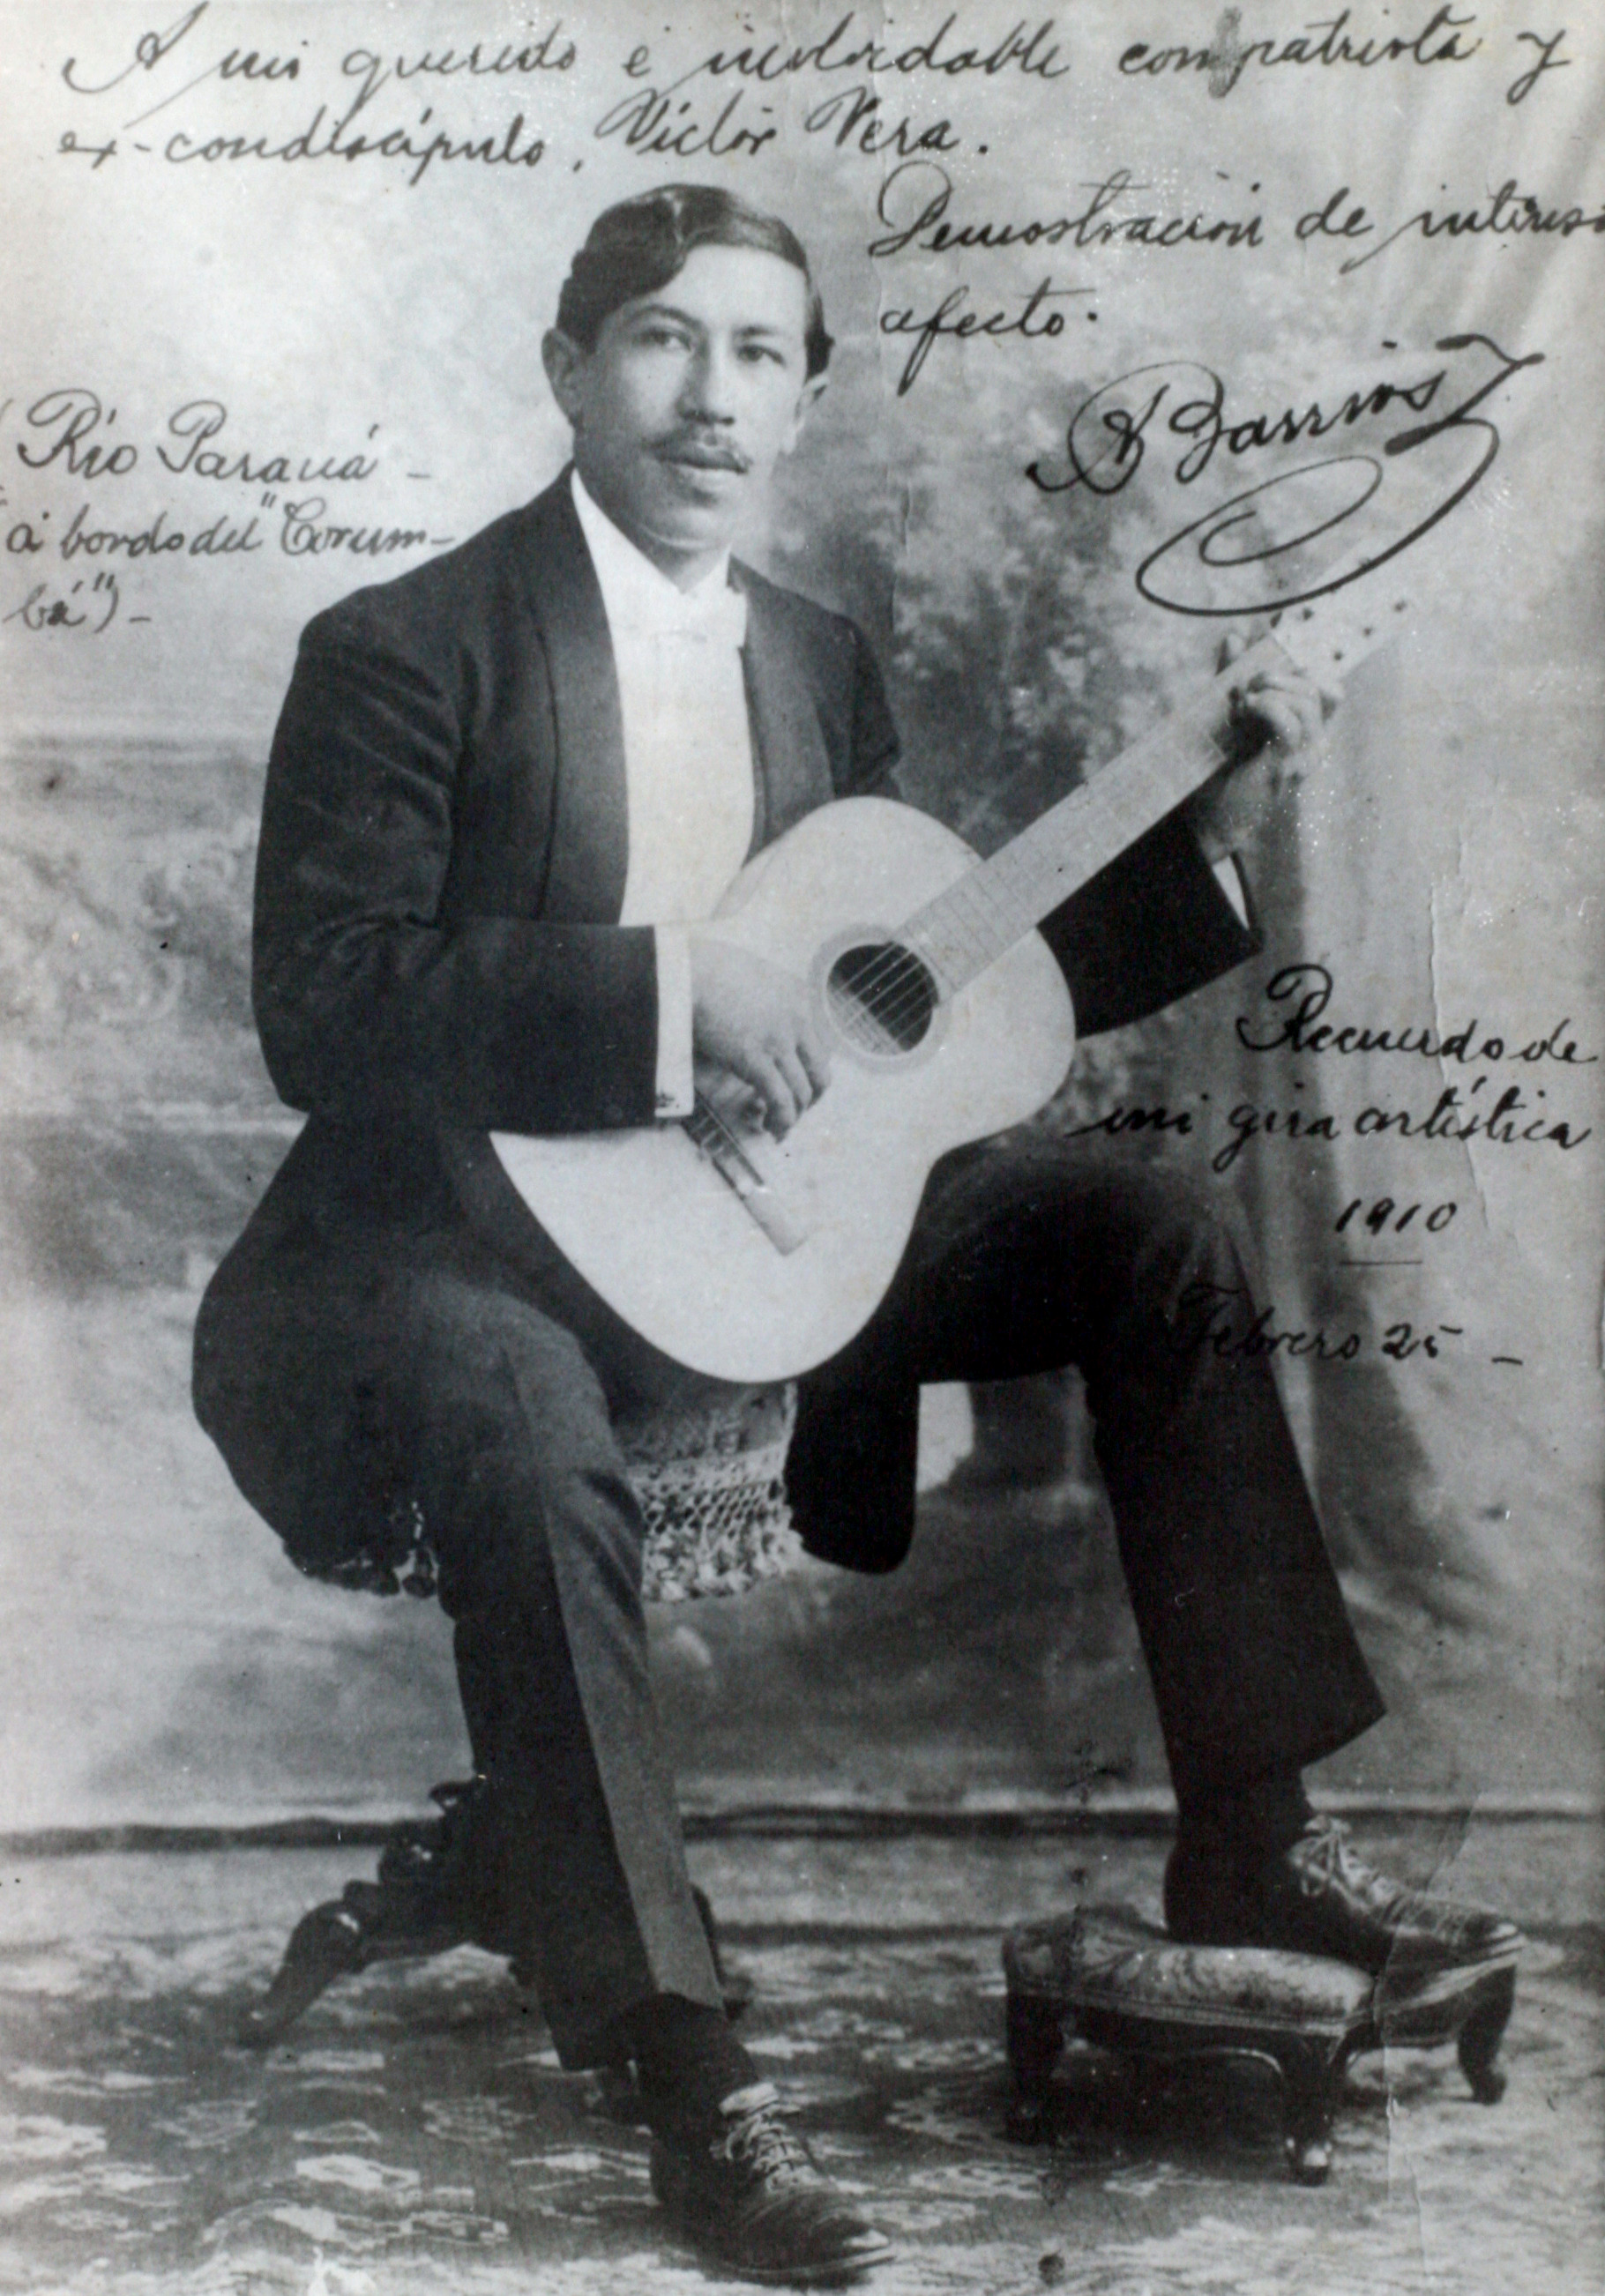 A mi querido é inolvidable compatriota y
ex-condiscípulo, Víctor Vera.
Demostración de intenso
afecto.
A Barrios
(Río Paraná -
á bordo del "Corum-
bá") -
Recuerdo de
mi gira artística
1910
Febrero 25 -